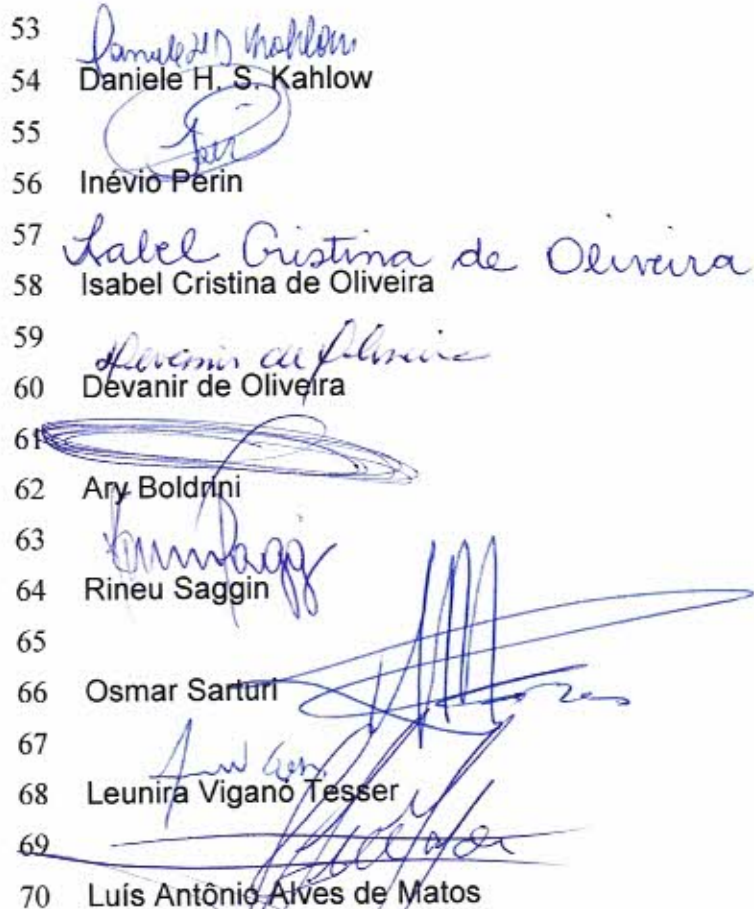 53
54 Daniele H. S. Kahlow
55
56 Inévio Perin
57 Isabel Cristina de Oliveira
58 Isabel Cristina de Oliveira
59 Devanir de Oliveira
60 Devanir de Oliveira
61
62 Ary Boldrini
63
64 Rineu Saggin
65
66 Osmar Sarturi
67
68 Leunira Viganó Tesser
69
70 Luís Antônio Alves de Matos